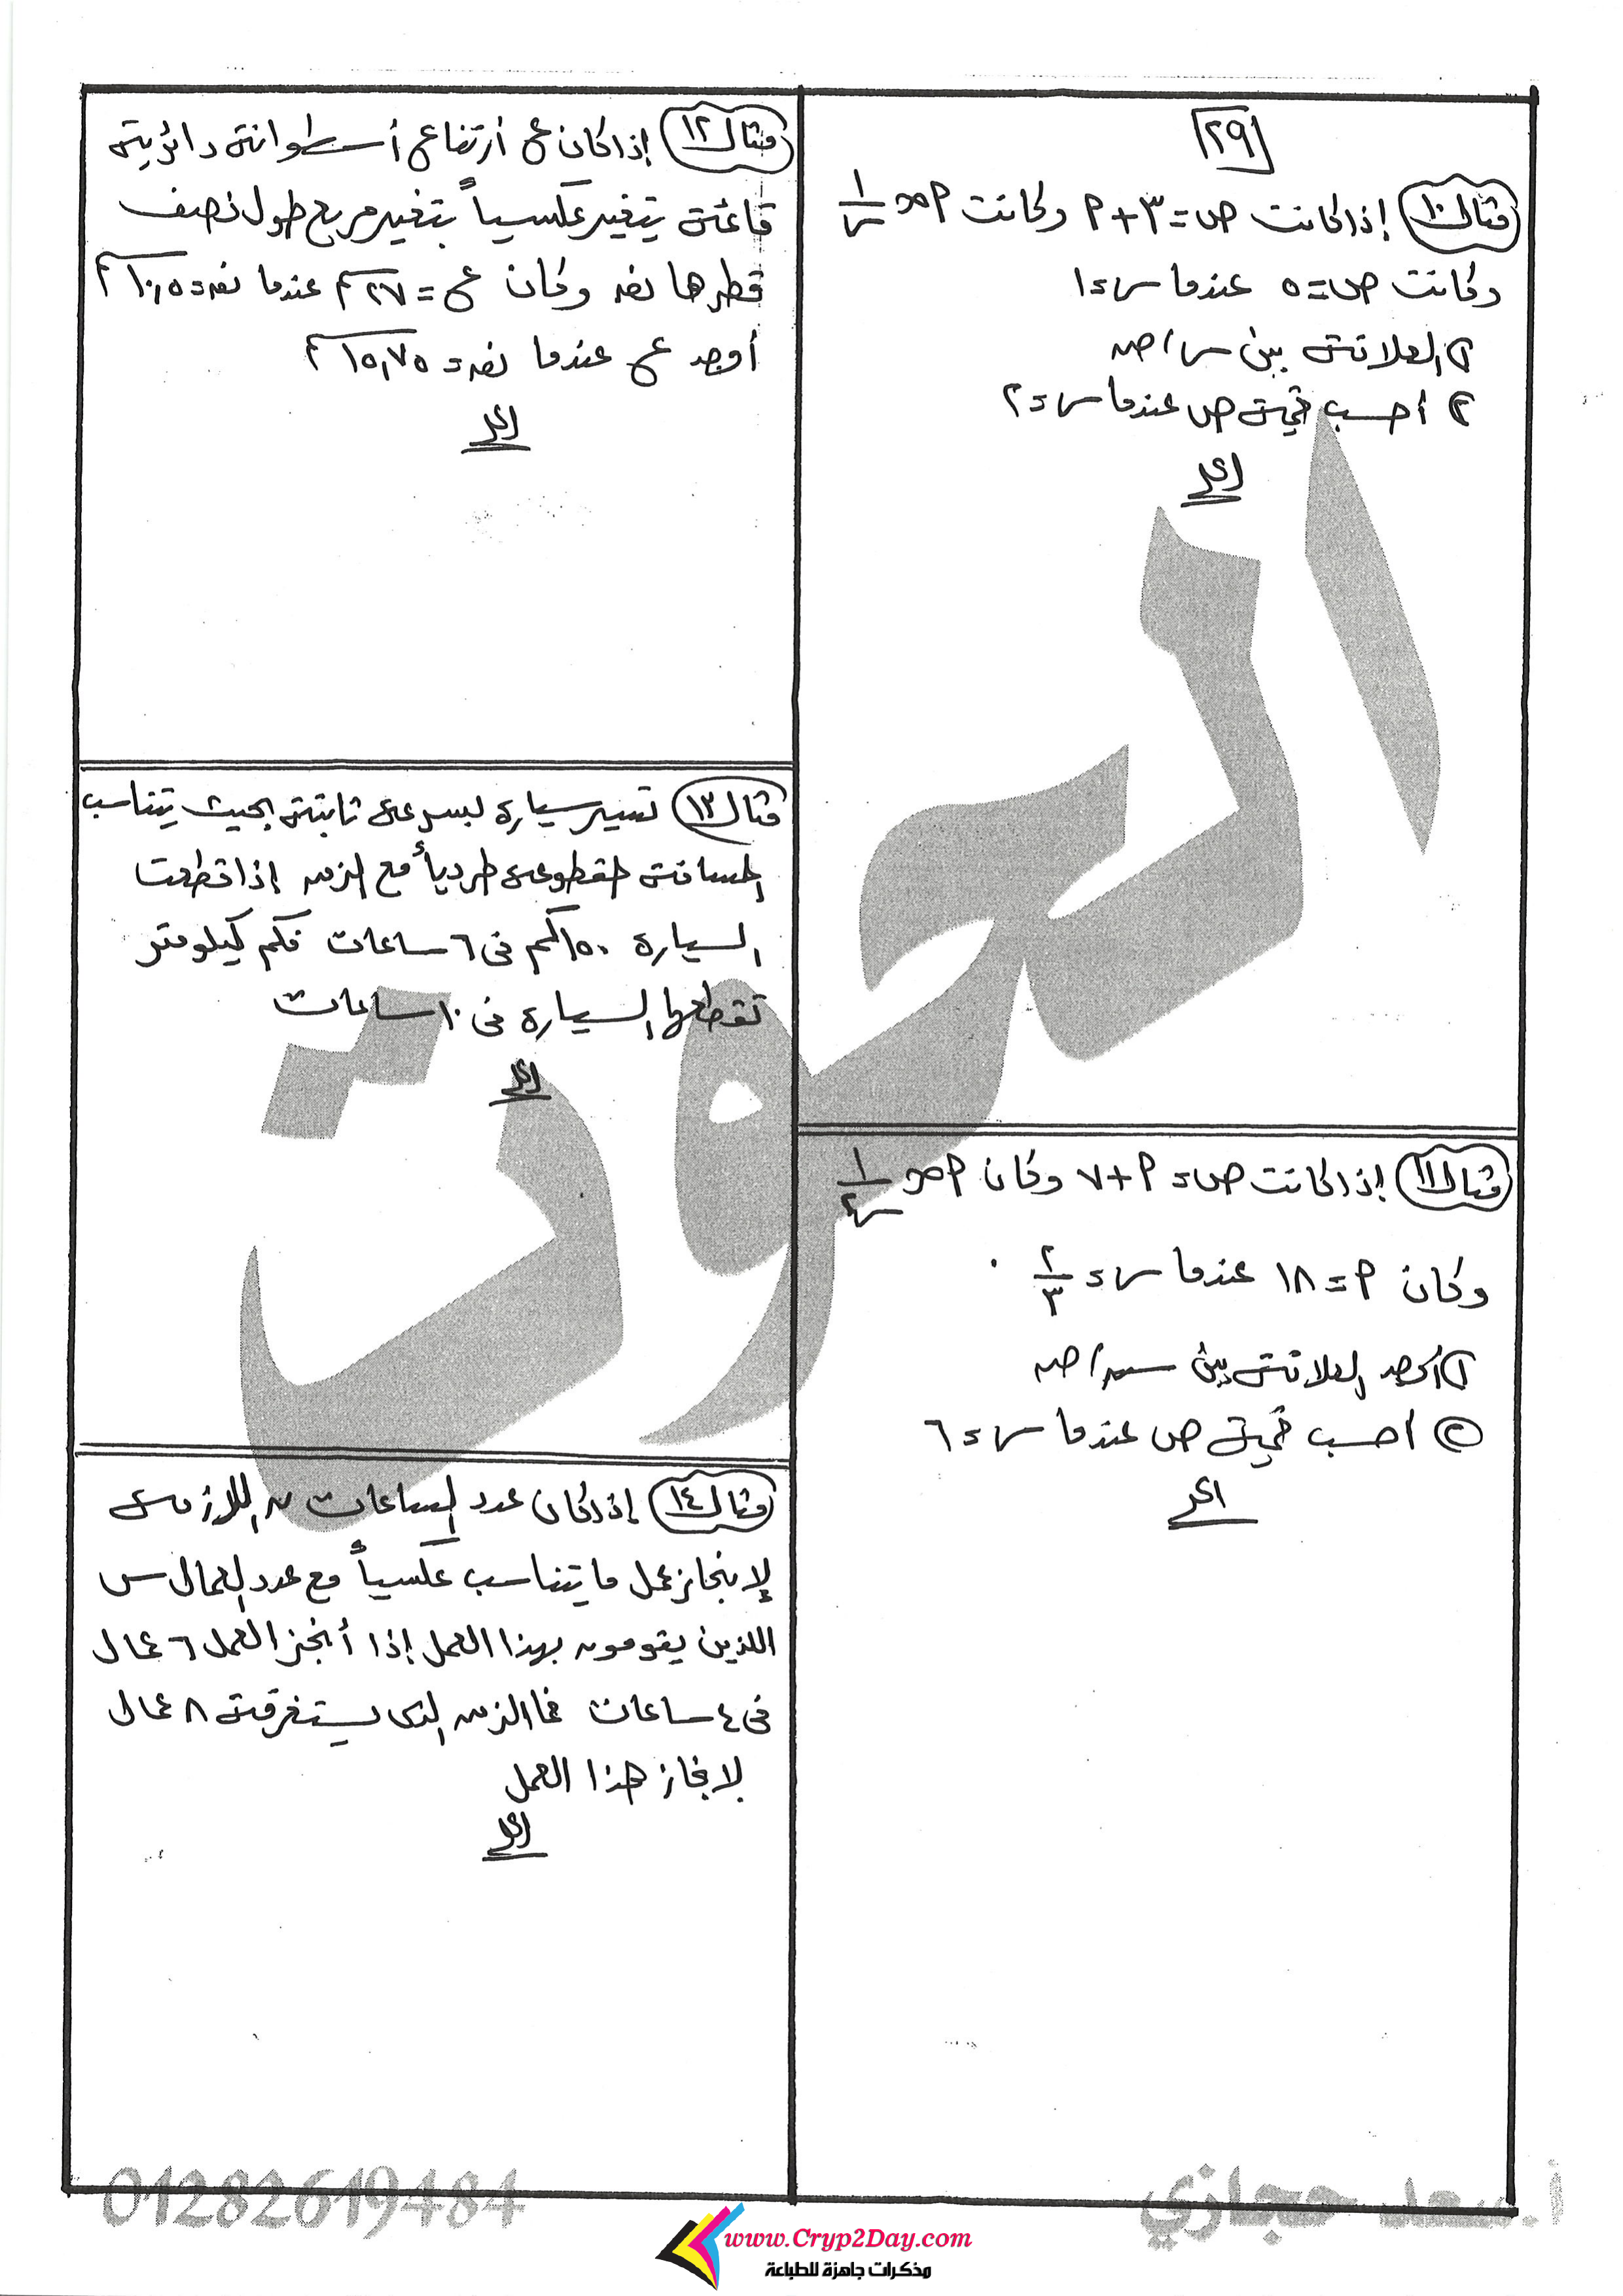 ٢٩
مثال ١٠ إذا كانت ص = ٣ + م وكانت م ∝ ١/س
وكانت ص = ٥ عندما س = ١
١ العلاقة بين س ، ص
٢ أحسب قيمة ص عندما س = ٢
الحل
مثال ١١ إذا كانت ص = م + ٧ وكان م ∝ ١/س٢
وكان م = ١٨ عندما س = ٢/٣
١ أوجد العلاقة بين س ، ص
٢ احسب قيمة ص عندما س = ٦
الحل
مثال ١٢ إذا كان ع أرتفاع أسطوانة دائرية
قائمة يتغير عكسياً بتغير مربع طول نصف
قطرها نق وكان ع = ٢٧ سم عندما نق = ١٠,٥ سم
أوجد ع عندما نق = ١٥,٧٥ سم
الحل
مثال ١٣ تسير سيارة بسرعة ثابتة بحيث يتناسب
المسافة المقطوعة طردياً مع الزمن إذا قطعت
السيارة ١٥٠ كم فى ٦ ساعات فكم كيلومتر
تقطعها السيارة فى ١٠ ساعات
الحل
مثال ١٤ إذا كان عدد الساعات ن اللازمة
لإنجاز عمل ما يتناسب عكسياً مع عدد العمال س
اللذين يقومون بهذا العمل إذا أنجز العمل ٦ عمال
فى ٤ ساعات فما الزمن الذى يستغرقة ٨ عمال
لانجاز هذا العمل
الحل
العونى
أ.سعد حجازي
01282619484
www.Cryp2Day.com
مذكرات جاهزة للطباعة